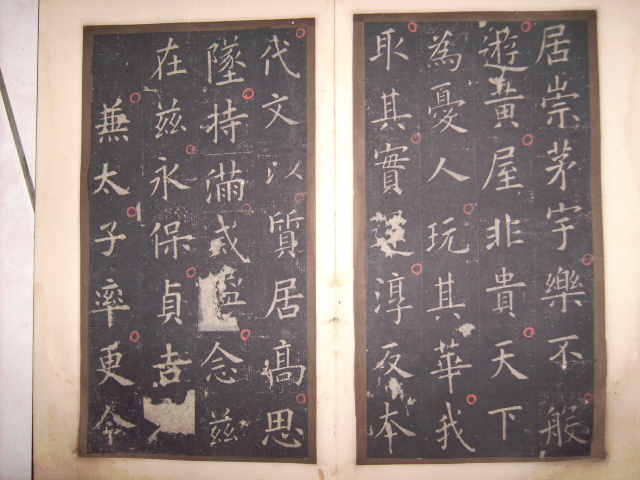 居崇茅宇樂不般
遊黃屋非貴天下
為憂人玩其華我
取其實還淳反本
代文以質居高思
墜持滿戒溢念茲
在茲永保貞吉
兼太子率更令